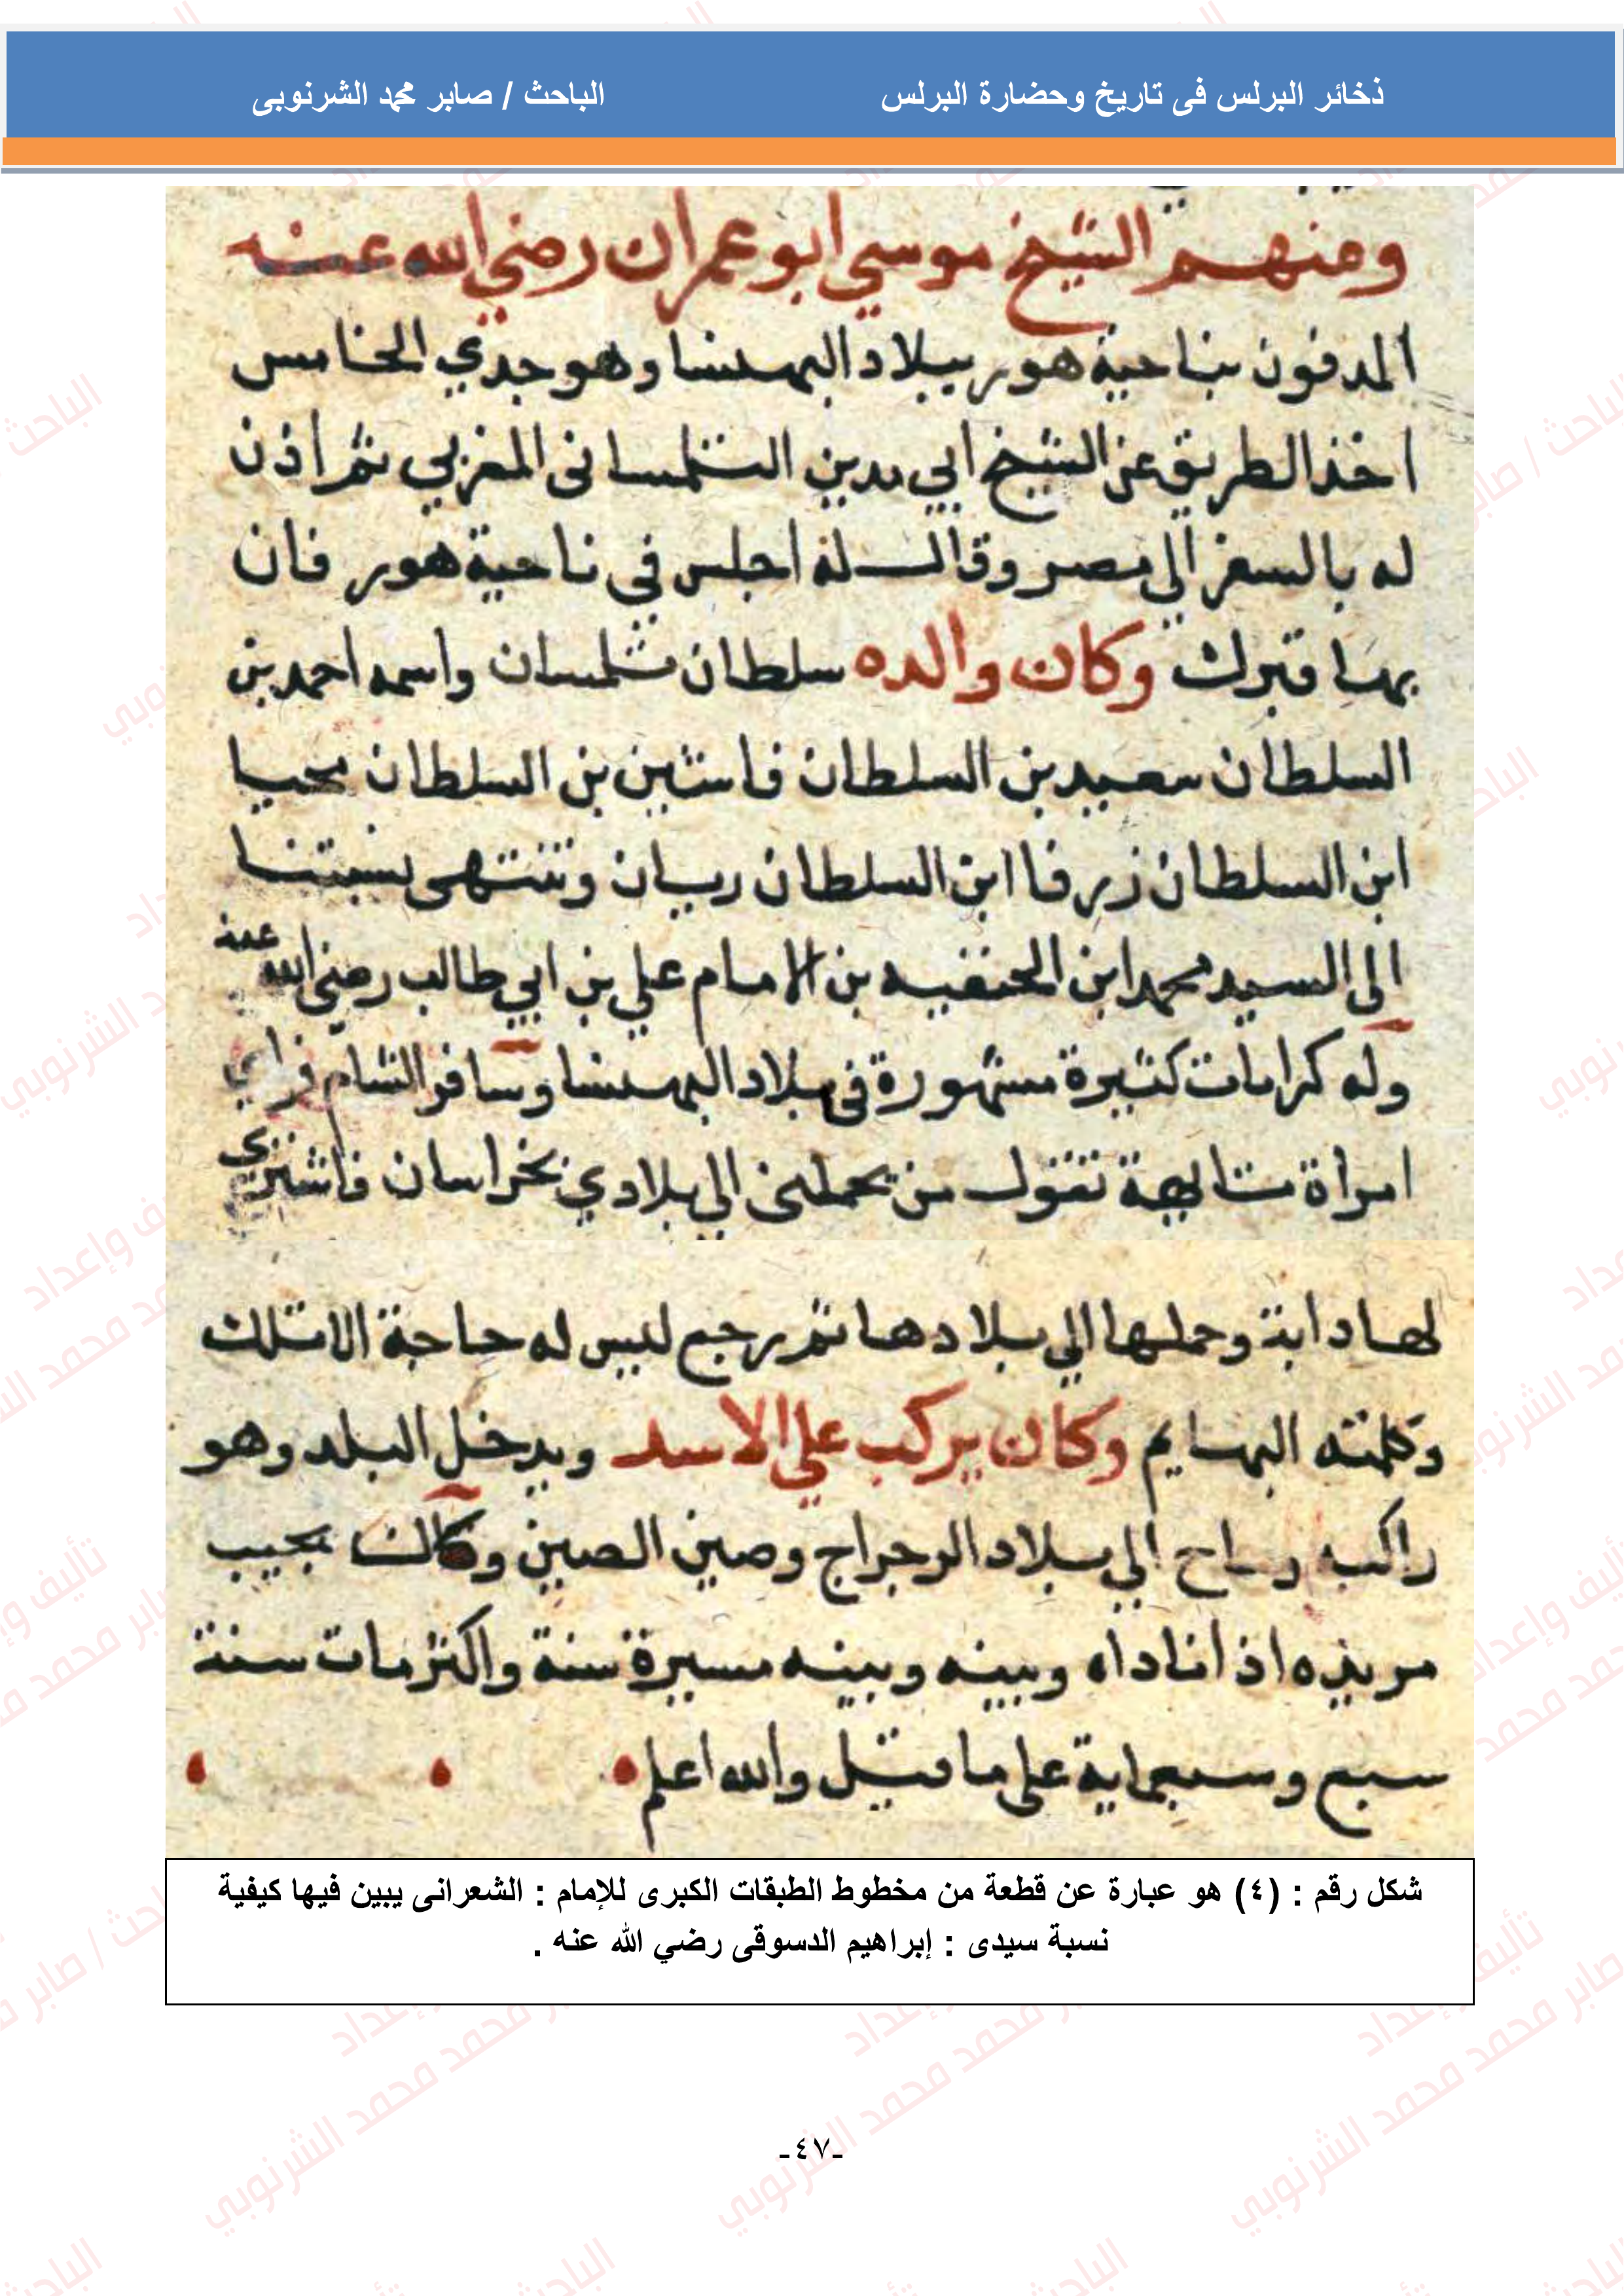 ذخائر البرلس فى تاريخ وحضارة البرلس الباحث / صابر محمد الشرنوبى
ومنهم الشيخ موسي ابو عمران رضي الله عنه
المدفون بناحية هور ببلاد البهنسا وهو جدي الخامس
اخذ الطريق عن الشيخ ابي مدين التلمسانى المغربي ثم أذن
له بالسفر الي مصر وقال له اجلس في ناحية هور فان
بها قبرك وكان والده سلطان تلمسان واسمه احمد بن
السلطان سعيد بن السلطان فاشين بن السلطان محيا
ابن السلطان زرفا ابن السلطان ريان وتنتهى نسبتنا
الى السيد محمد ابن الحنفيه بن الامام علي بن ابي طالب رضى الله عنه
وله كرامات كثيرة مشهورة فى بلاد البهنسا وسافر الشام فراي
امراة متالهة تقول من يحملنى الي بلادي بخراسان فاشتري
لها دابة وحملها الي بلادها ثم رجع ليس له حاجة الا تلك
وكلمته البهايم وكان يركب علي الاسد ويدخل البلد وهو
راكبه وساح الي بلاد الرجراج وصين الصين وكان يجيب
مريده اذا ناداه وبينه وبينه مسيرة سنة واكثر مات سنة
سبع وسبعماية على ما قيل والله اعلم
شكل رقم : (٤) هو عبارة عن قطعة من مخطوط الطبقات الكبرى للإمام : الشعرانى يبين فيها كيفية
نسبة سيدى : إبراهيم الدسوقى رضي الله عنه .
-٤٧-